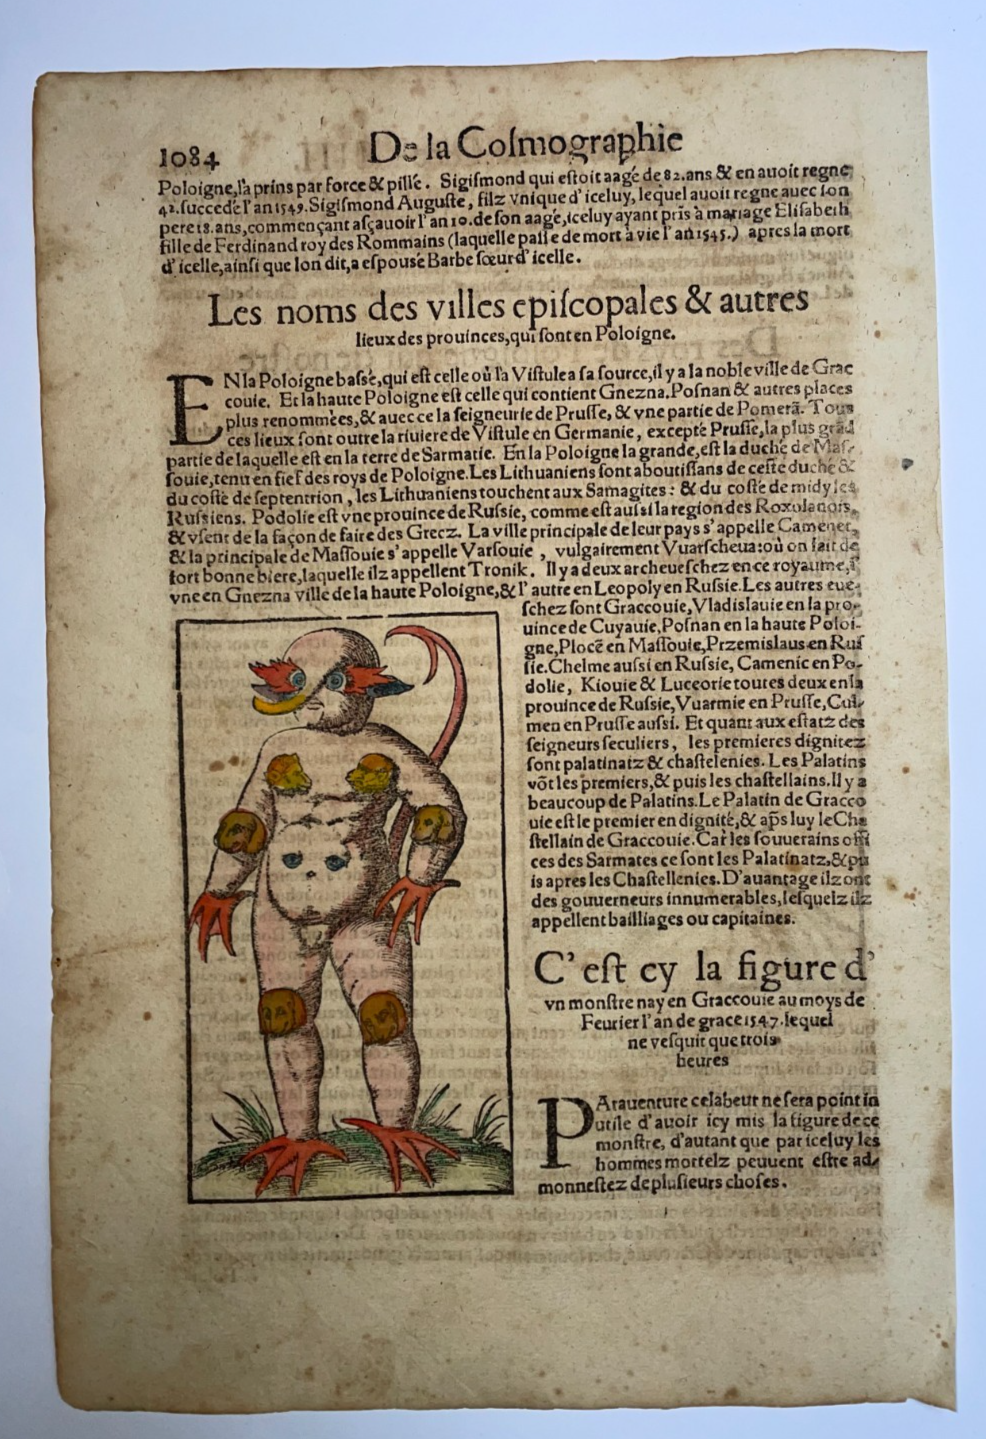 1084
De la Coſmographie
Poloigne, l'a prins par force & pillé. Sigiſmond qui eſtoit aagé de 82. ans & en auoit regne
42. ſuccedé l'an 1549. Sigiſmond Auguſte, filz vnique d'iceluy, lequel auoit regne auec ſon
pere 18. ans, commençant aſçauoir l'an 10. de ſon aage, iceluy ayant pris à mariage Eliſabeth
fille de Ferdinand roy des Rommains (laquelle paſſe de mort à vie l'an 1545.) apres la mort
d'icelle, ainſi que lon dit, a eſpousé Barbe ſœur d'icelle.
Les noms des villes epiſcopales & autres
lieux des prouinces, qui ſont en Poloigne.
EN la Poloigne baſſe, qui eſt celle où la Viſtule a ſa ſource, il y a la noble ville de Grac
couie. Et la haute Poloigne eſt celle qui contient Gnezna. Poſnan & autres places
plus renommées, & auec ce la ſeigneurie de Pruſſe, & vne partie de Pomerã. Tous
ces lieux ſont outre la riuiere de Viſtule en Germanie, excepté Pruſſe, la plus grãd
partie de laquelle eſt en la terre de Sarmatie. En la Poloigne la grande, eſt la duché de Maſ-
ſouie, tenu en fief des roys de Poloigne. Les Lithuaniens ſont aboutiſſans de ceſte duché &
du coſté de ſeptentrion, les Lithuaniens touchent aux Samagites: & du coſté de midy les
Ruſsiens. Podolie eſt vne prouince de Ruſsie, comme eſt auſsi la region des Roxolanois,
& vſent de la façon de faire des Grecz. La ville principale de leur pays s'appelle Camenet,
& la principale de Maſſouie s'appelle Varſouie, vulgairement Vuarſcheua: où on fait de
fort bonne biere, laquelle ilz appellent Tronik. Il y a deux archeueſchez en ce royaume, l'
vne en Gnezna ville de la haute Poloigne, & l'autre en Leopoly en Ruſsie. Les autres eue-
ſchez ſont Graccouie, Vladislauie en la pro-
uince de Cuyauie, Poſnan en la haute Poloi-
gne, Plocē en Maſſouie, Przemislaus en Ruſ
ſie. Chelme auſsi en Ruſsie, Camenic en Po-
dolie, Kiouie & Luceorie toutes deux en la
prouince de Ruſsie, Vuarmie en Pruſſe, Cul-
men en Pruſſe auſsi. Et quant aux eſtatz des
ſeigneurs ſeculiers, les premieres dignitez
ſont palatinatz & chaſtelenies. Les Palatins
võt les premiers, & puis les chaſtellains. Il y a
beaucoup de Palatins. Le Palatin de Gracco
uie eſt le premier en dignité, & aps luy le Cha
ſtellain de Graccouie. Car les ſouuerains offi
ces des Sarmates ce ſont les Palatinatz, & pu
is apres les Chaſtellenies. D'auantage ilz ont
des gouuerneurs innumerables, leſquelz ilz
appellent bailliages ou capitaines.
C'eſt cy la figure d'
vn monſtre nay en Graccouie au moys de
Feurier l'an de grace 1547. lequel
ne veſquit que trois
heures
PArauenture ce labeur ne ſera point in
utile d'auoir icy mis la figure de ce
monſtre, d'autant que par iceluy les
hommes mortelz peuuent eſtre ad-
monneſtez de pluſieurs choſes.